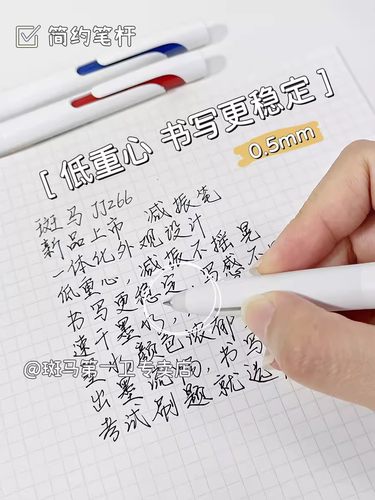 简约笔杆
[ 低重心 书写更稳定 ]
0.5mm
斑马 JJ266 减振笔
新品上市
一体化外观设计
低重心,减振不摇晃
书写更稳定,写感不
速干墨水,
墨水颜色浓郁
出墨流畅,书写
考试刷题就选
@斑马第一卫专卖店